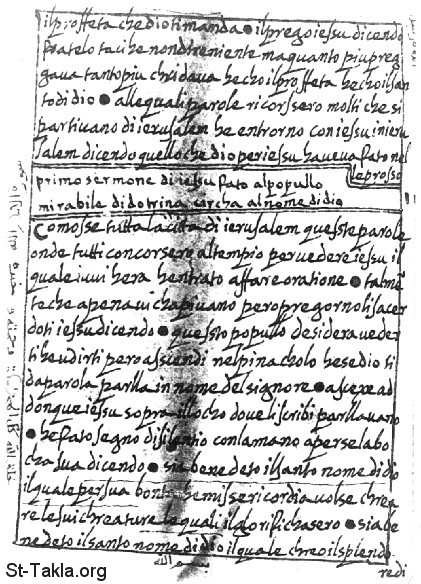 il proffeta che dio ti manda • il prego iessu dicendo
fratelo taci he non dir eniente ma quanto piu preg
gava tanto piu chridava hecho il proffeta hecho il san
to di dio • alle quali parole ricorssero molti che si
partivano di ierusalem he entrorno con iessu in ieru
salem dicendo quello che dio per iessu haveva fato nel
leprosso
primo sermone di iessu fato al popullo
mirabile di dotrina cercha al nome di dio
Comosse tutta la cita di ierusalem quesste parole
onde tutti concorsere al tempio per vedere iessu il
quale iuui hera hentrato affare oratione • talmē
te che apena vi chapiuano pero pregorno li sacer
doti iessu dicendo • quessto popullo desidera veder
ti he udirti pero assiendi nel pinacholo he se dio ti
da parola parlla in nome del signore • ascexe ad
donque iessu sopra illocho doue li scribi parllauano
• he fato segno di silentio con la mano aperse la bo
cha sua dicendo • sia benedeto il santo nome di dio
il quale per sua bonta he missericordia volse chrea
re le sui chreature le quali il glorifichasero • sia be
nedeto il santo nome di dio il quale chreo il splendo
re di
St-Takla.org